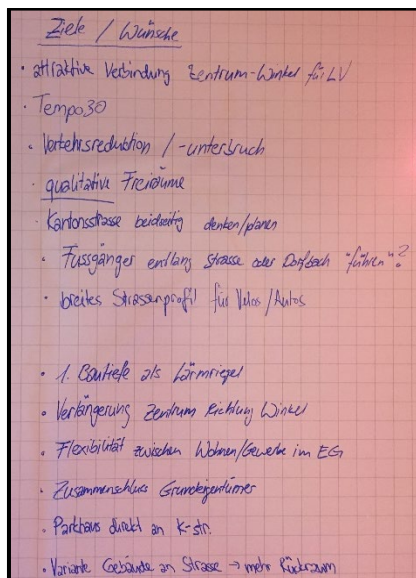 Ziele / Wünsche
• attraktive Verbindung Zentrum-Winkel für LV
• Tempo30
• Verkehrsreduktion / -unterbruch
• qualitative Freiräume
• Kantonsstrasse beidseitig denken/planen
• Fussgänger entlang Strasse oder Dorfbach "führen"?
• breites Strassenprofil für Velos/Autos
• 1. Bautiefe als Lärmriegel
• Verlängerung Zentrum Richtung Winkel
• Flexibilität zwischen Wohnen/Gewerbe im EG
• Zusammenschluss Grundeigentümer
• Parkhaus direkt an K-str.
• Variante Gebäude an Strasse → mehr Rückraum